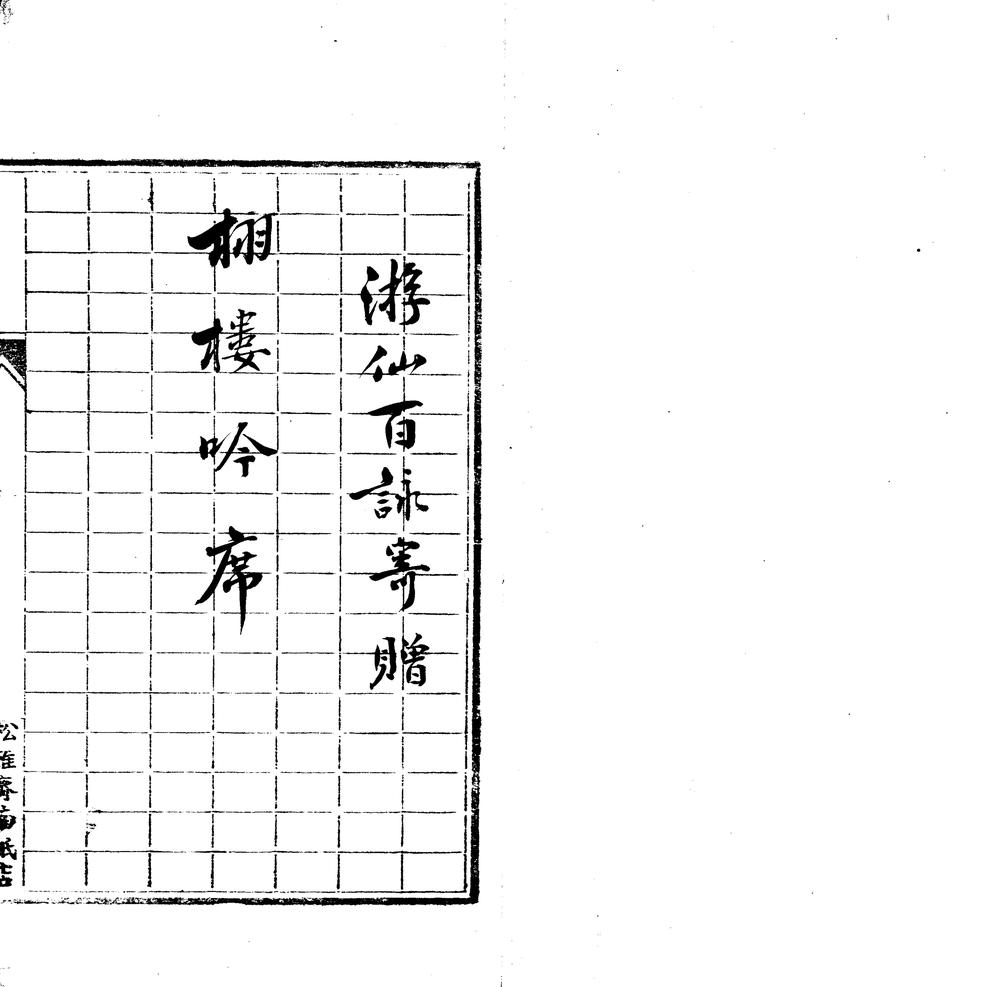 游仙百詠寄贈
栩樓吟席
松雅齋南紙店